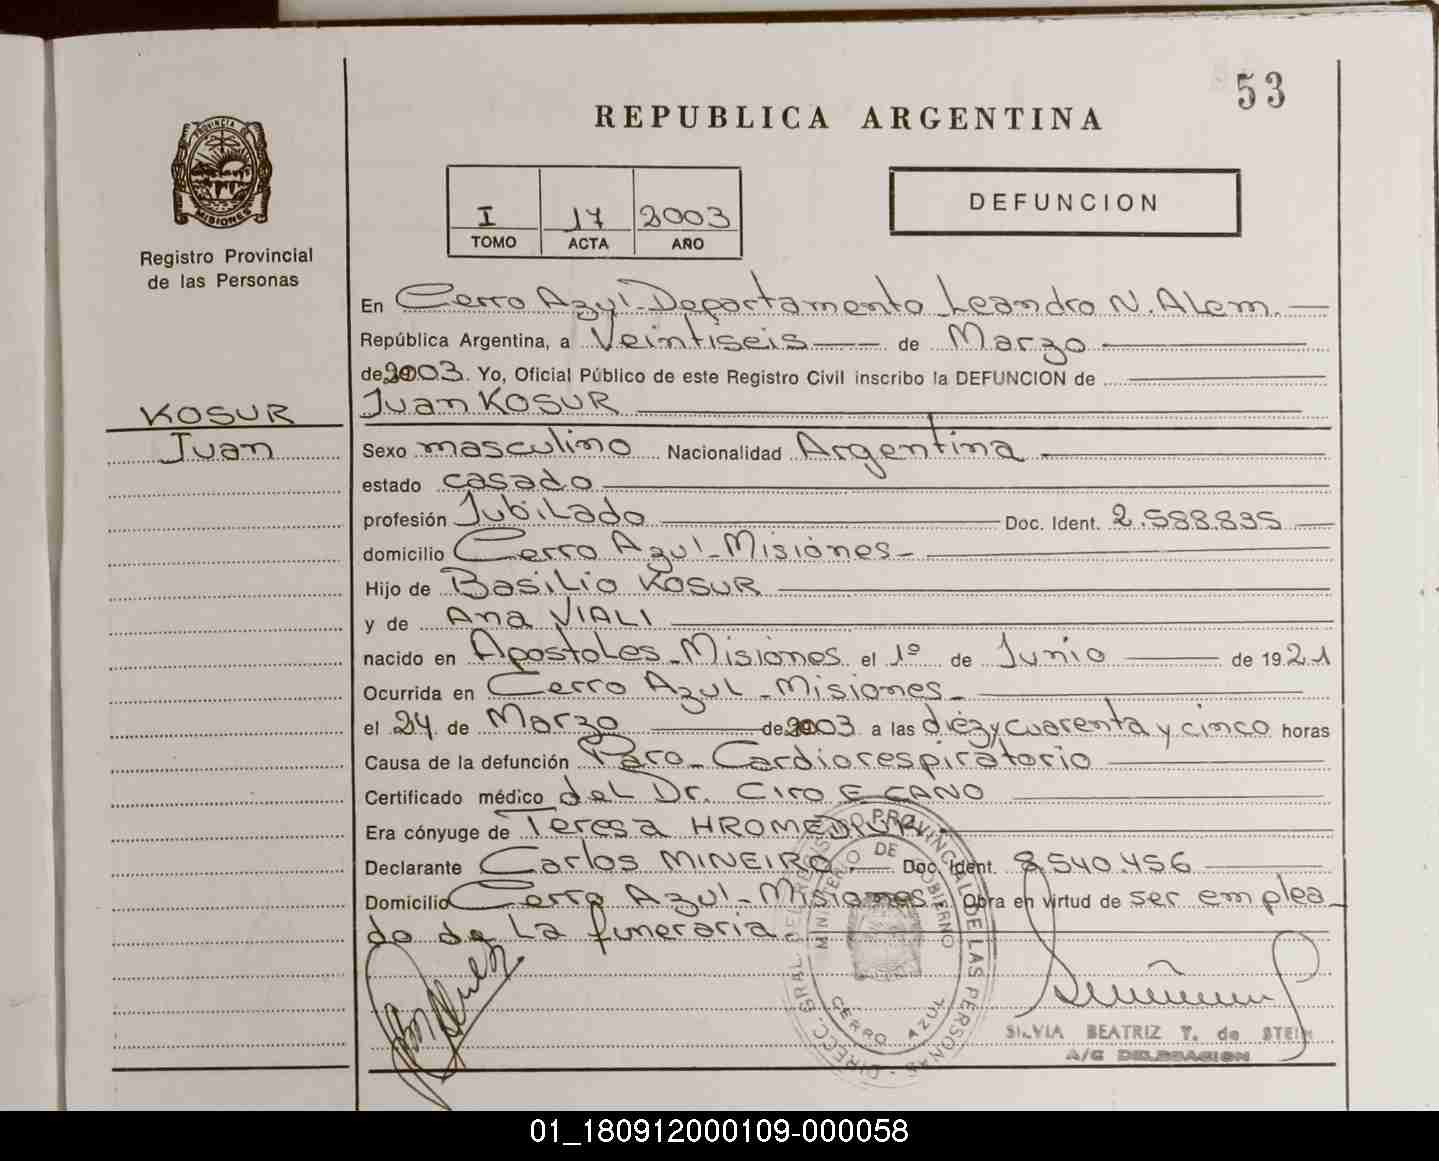 53
REPUBLICA ARGENTINA
PROVINCIA DE
MISIONES
Registro Provincial
de las Personas
I 17 2003
TOMO ACTA AÑO
DEFUNCION
En Cerro Azul-Departamento Leandro N. Alem.
República Argentina, a Veintiseis de Marzo
de 2003. Yo, Oficial Público de este Registro Civil inscribo la DEFUNCION de
KOSUR
Juan
Juan KOSUR
Sexo masculino Nacionalidad Argentina
estado casado
profesión Jubilado Doc. Ident. 2.588.835
domicilio Cerro Azul-Misiones-
Hijo de Basilio KOSUR
y de Ana VIALI
nacido en Apostoles-Misiones el 1º de Junio de 1921
Ocurrida en Cerro Azul-Misiones-
el 24 de Marzo de 2003 a las diez y cuarenta y cinco horas
Causa de la defunción Paro-Cardiorespiratorio
Certificado médico del Dr. Ciro E CANO
Era cónyuge de Teresa
Declarante Carlos MINEIRO. Doc. Ident. 8.540.456
Domicilio Cerro Azul-Misiones. Obra en virtud de ser emplea-
do de La funeraria.
DIRECC. GRAL. DEL REGISTRO PROVINCIAL DE LAS PERSONAS
MINISTERIO DE GOBIERNO
CERRO AZUL
SILVIA BEATRIZ Y. de STEIN
A/C DELEGACION
01_180912000109-000058